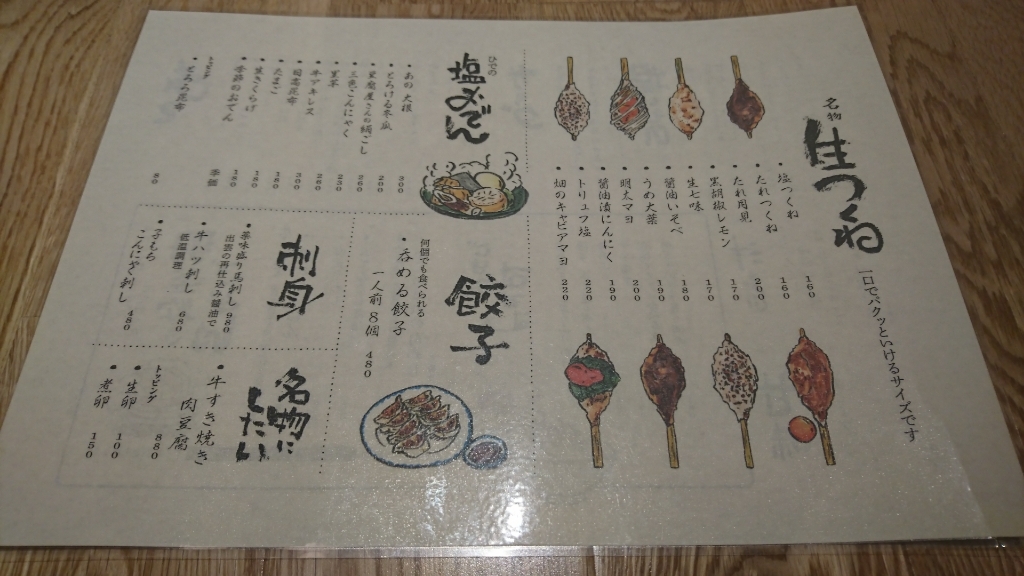 名物
生つくね
一口でパクッといけるサイズです
塩つくね 160
たれつくね 160
たれ月見 200
黒胡椒レモン 170
生七味 170
醤油いそべ 180
うめ大葉 190
明太マヨ 200
醤油漬にんにく 190
トリュフ塩 220
畑のキャビアマヨ 220
ひでの
塩おでん
あわ大根 300
とろける冬瓜 200
豆腐屋さんの絹ごし 260
三色こんにゃく 230
里芋 260
牛アキレス 300
羅臼昆布 180
たまご 180
生きくらげ 180
季節のおでん 季価
トッピング
とろろ昆布 80
餃子
何個でも食べられる
呑める餃子
一人前8個 480
刺身
薬味盛り馬刺し 980
出雲の再仕込み醤油で
牛ハツ刺し 680
低温調理
つきもち
こんにゃく刺し 480
名物に
したい
牛すき焼き
肉豆腐 880
トッピング
生卵 100
煮卵 150